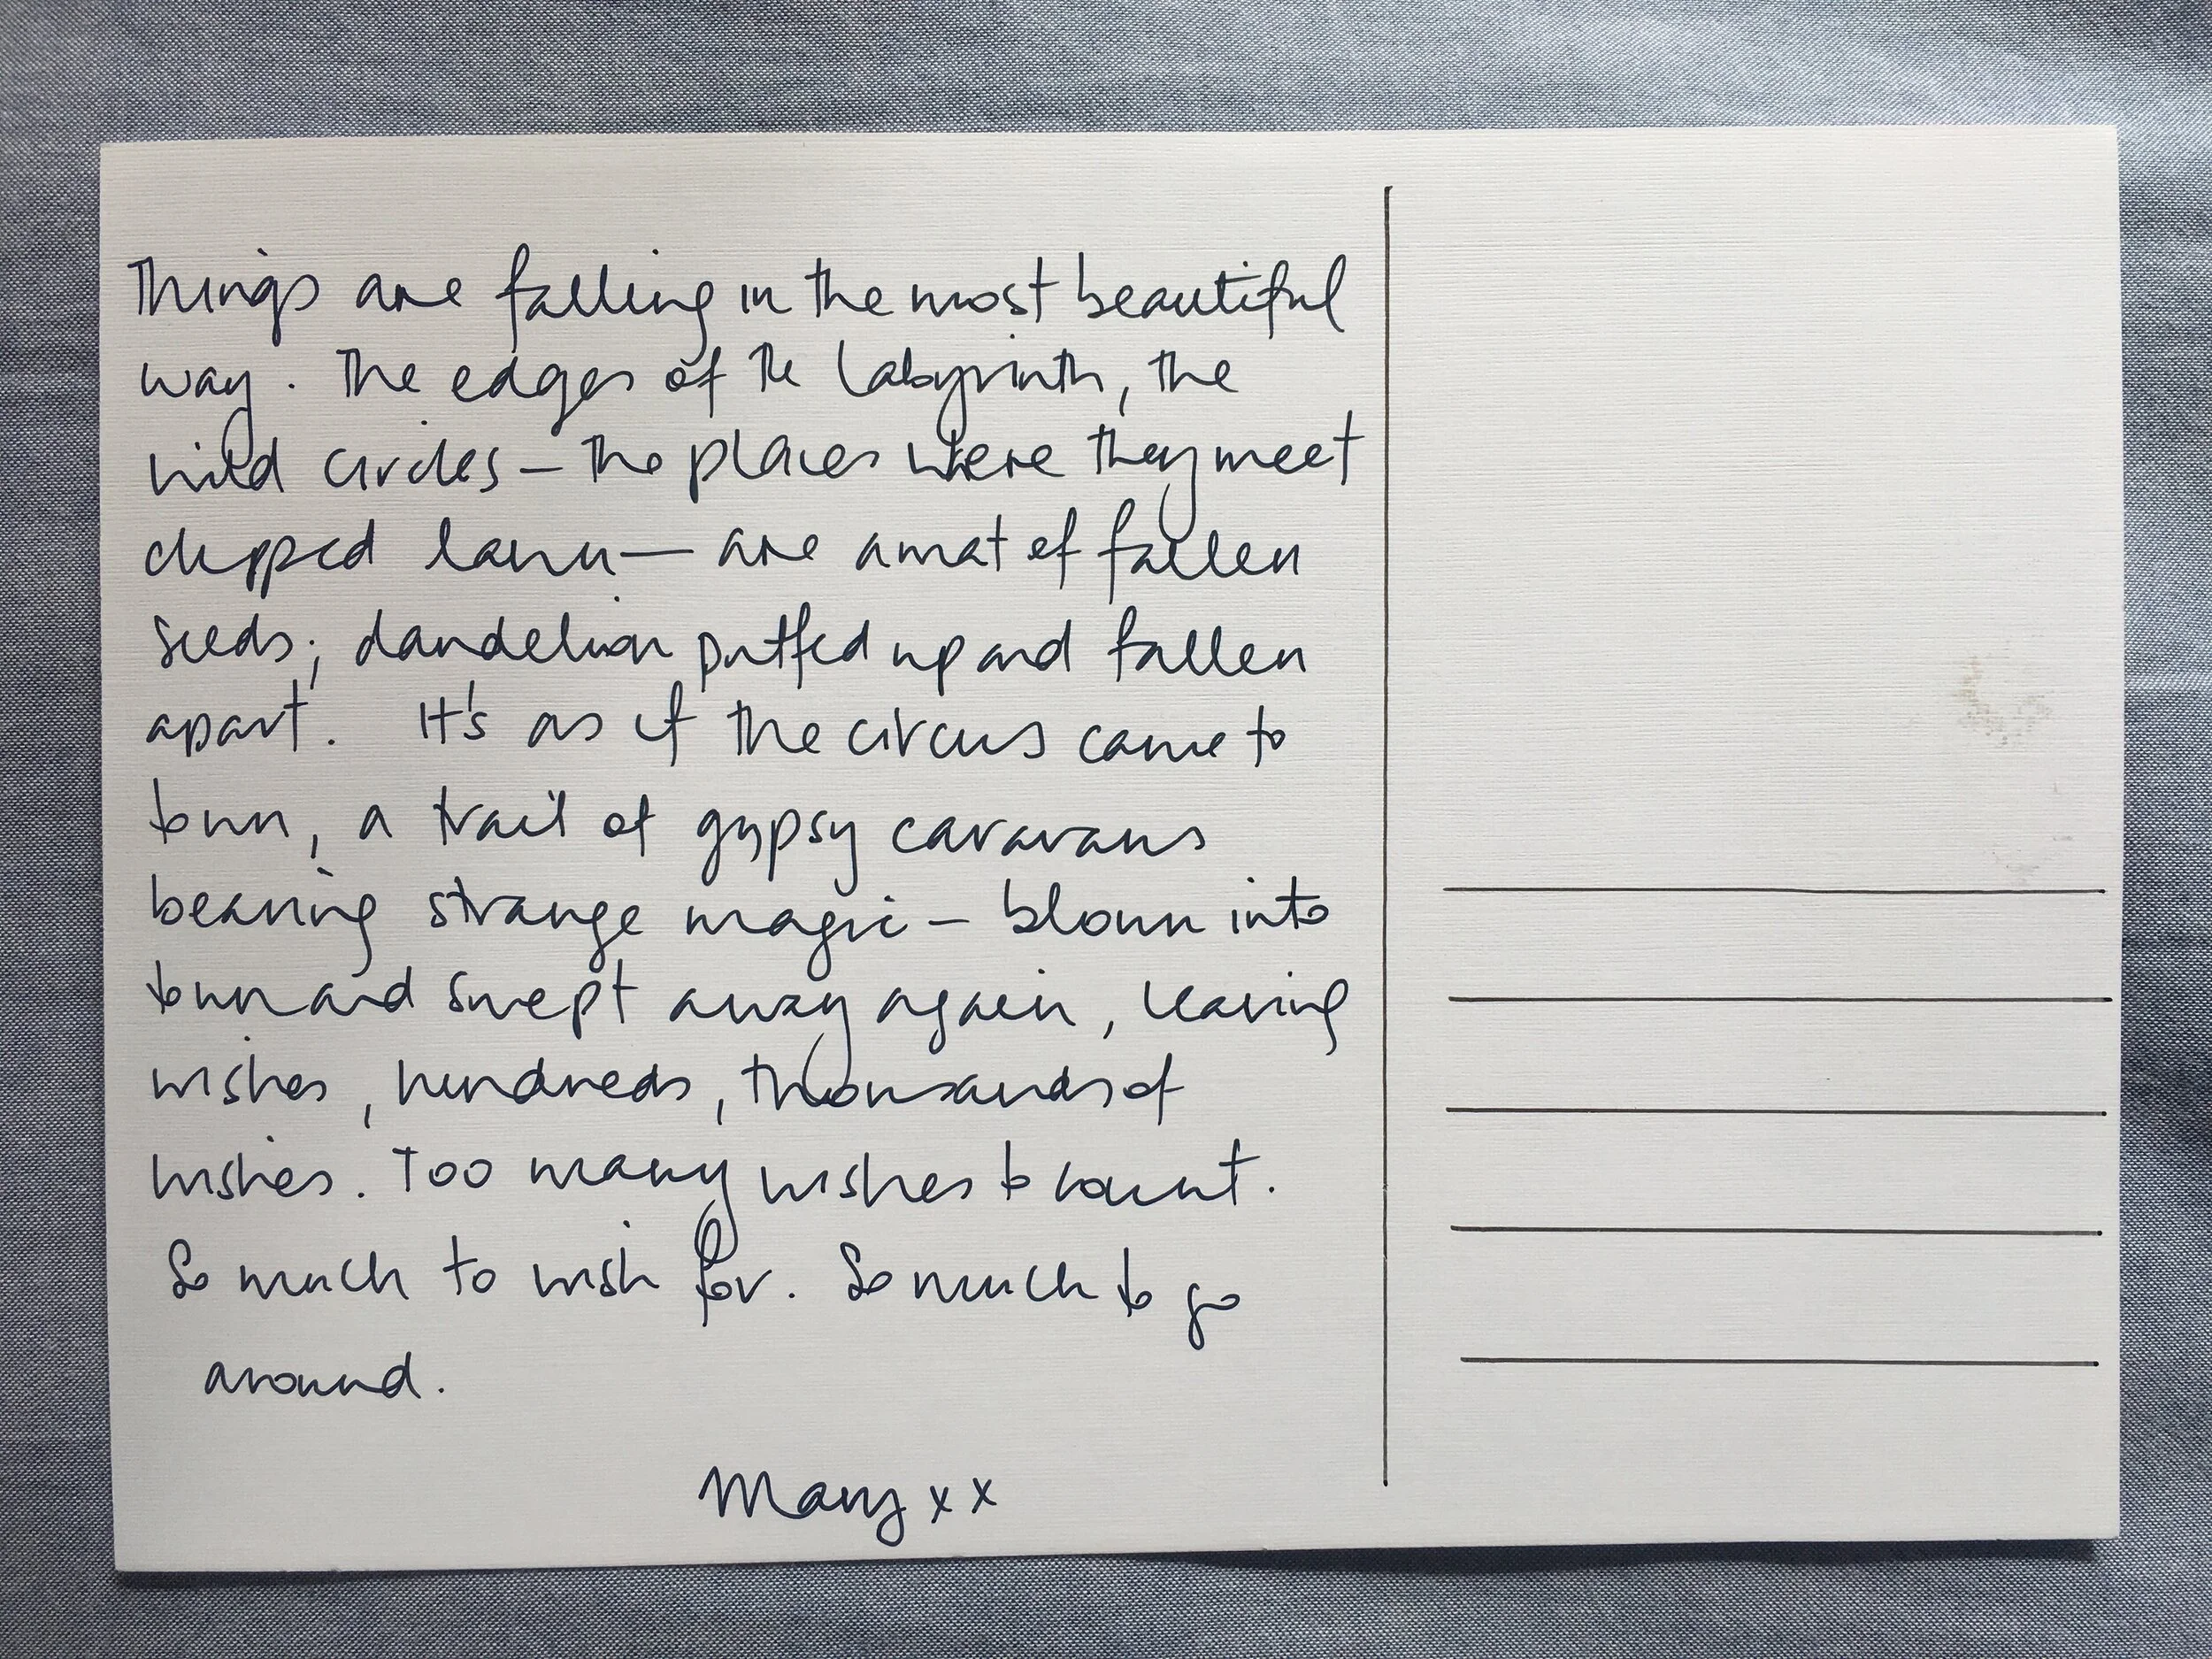 Things are falling in the most beautiful
way. The edges of the labyrinth, the
wild circles – the places where they meet
clipped lawn — are a mat of fallen
seeds; dandelion puffed up and fallen
apart. It's as if the circus came to
town, a trail of gypsy caravans
bearing strange magic – blown into
town and swept away again, leaving
wishes, hundreds, thousands of
wishes. Too many wishes to count.
So much to wish for. So much to go
around.
Mary xx